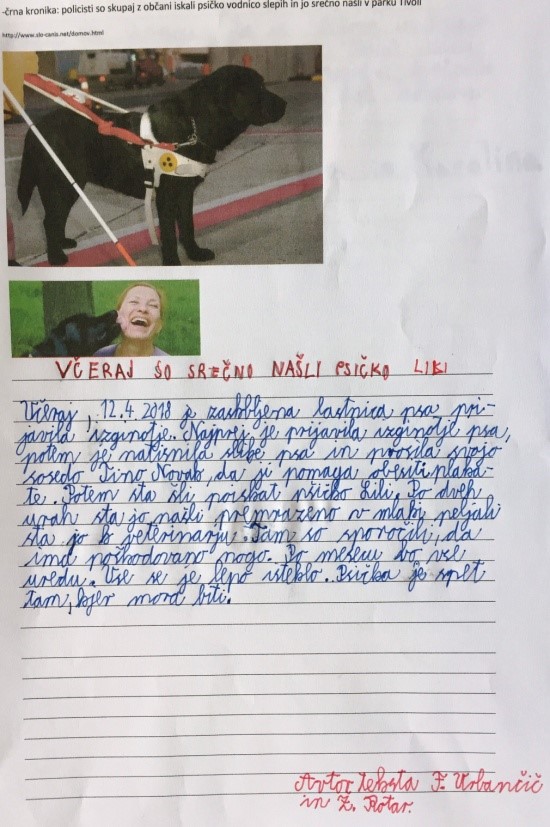 -črna kronika: policisti so skupaj z občani iskali psičko vodnico slepih in jo srečno našli v parku Tivoli
http://www.slo-canis.net/domov.html
VČERAJ ŠO SREČNO NAŠLI PSIČKO LIKI
Včeraj, 12.4.2018 je zaskbljena lastnica psa pri-
javila izginotje. Najprej je prijavila izginotje psa,
potem je natisnila slike psa in prosila svojo
sosedo Tino Novak, da ji pomaga obesiti plaka-
te. Potem sta šli poiskat psičko Lili. Po dveh
urah sta jo našli premraženo v mlaki peljali
sta jo k veterinarju. Tam so sporočili, da
ima poškodovano nogo. Po mesecu bo vse
uredu. Vse se je lepo isteklo. Psička je spet
tam, kjer mora biti.
Avtor teksta F. Urbančič
in Z. Rotar.